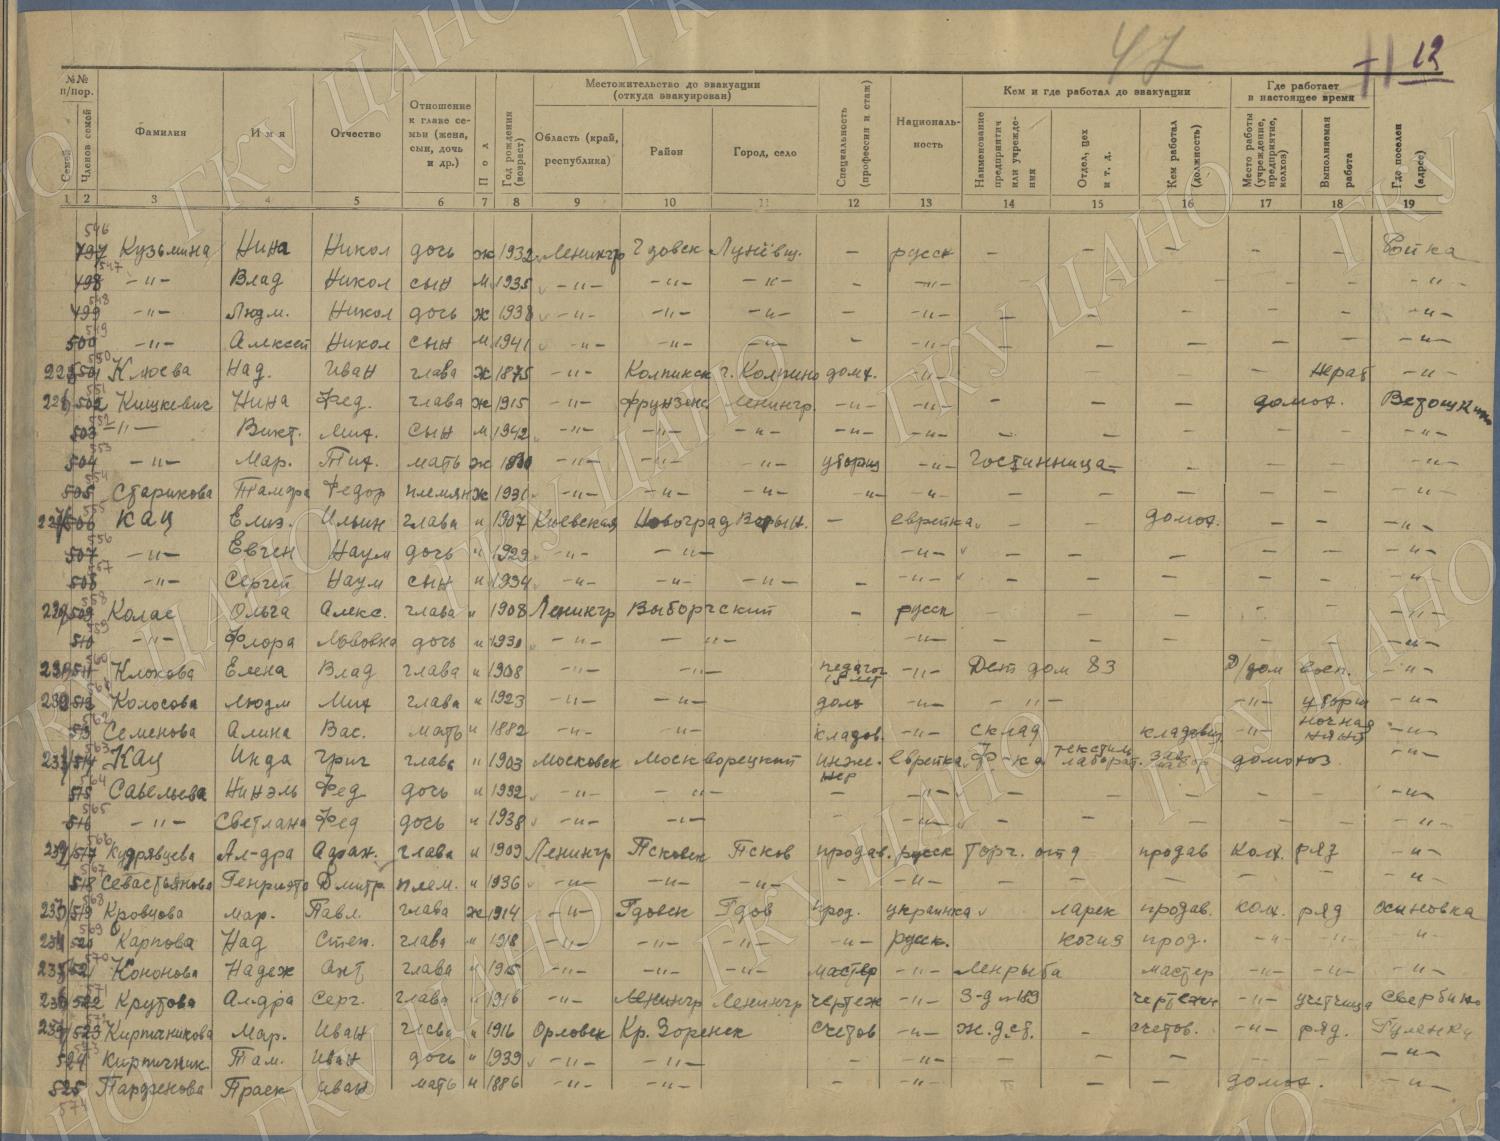 47
12
№№ п/пор.
Семей
Членов семей
Фамилия
Имя
Отчество
Отношение к главе семьи (жена, сын, дочь и др.)
Пол
Год рождения (возраст)
Местожительство до эвакуации (откуда эвакуирован)
Область (край, республика)
Район
Город, село
Специальность (профессия и стаж)
Националь-ность
Кем и где работал до эвакуации
Наименование предприятия или учрежде-ния
Отдел, цех и т. д.
Кем работал (должность)
Где работает в настоящее время
Место работы (учреждение, предприятие, колхоз)
Выполняемая работа
Где поселен (адрес)
1 2 3 4 5 6 7 8 9 10 11 12 13 14 15 16 17 18 19
546
497 Кузьмина Нина Никол дочь ж 1932 Ленингр Гдовск — русск — — — — —
547
498 —"— Влад Никол сын м 1935 —"— —"— —"— — —"— — — — — — —"—
548
499 —"— Людм. Никол дочь ж 1938 —"— —"— —"— — —"— — — — — — —"—
549
500 —"— Алексей Никол сын м 1941 —"— —"— —"— — —"— — — — — — —"—
550
501 Клюева Над. Иван глава ж 1875 —"— Колпинск г. Колпино домх. —"— — — — — нераб —"—
551
502 Кишкевич Нина Фед. глава ж 1915 —"— Фрунзенс Ленингр. —"— —"— — — — домох. Ветошкино
552
503 —"— Викт. Мих. сын м 1942 —"— —"— —"— —"— —"— — — — — — —"—
553
504 —"— Мар. Тих. мать ж —"— —"— —"— уборщ —"— гостинница — — — — —"—
554
505 Старикова Тамара Федор племян ж 1931 —"— —"— —"— —"— —"— — — — — — —"—
555
506 Кац Елиз. Ильин глава " 1907 Киевская Новоград Волын. — еврейка — — домох. — — —"—
556
507 —"— Евген Наум дочь " 1929 —"— —"— —"— — — — — — —"—
557
508 —"— Сергей Наум сын " 1934 —"— —"— —"— — —"— — — — — — —"—
558
509 Колас Ольга Алекс. глава " 1908 Ленингр Выборгский — русск — — — — — —"—
559
510 —"— Флора Львовна дочь " 1930 —"— —"— —"— — — — — — —"—
560
511 Клюкова Елена Влад глава " 1908 —"— —"— педагог 15 лет —"— Дет дом 83 Д/дом восп. —"—
512 Колосова Людм Мих глава " 1923 —"— —"— —"— —"— —"— уборщ —"—
562
513 Семенова Алина Вас. мать " 1882 —"— —"— кладов. —"— склад кладовщ. —"— ночная няня —"—
563
514 Кац Инда Григ глава " 1903 Московск Москворецкий инже-нер еврейка Ф-ка текстиль лаборат. домохоз —"—
564
515 Савельева Нинэль Фед дочь " 1932 —"— —"— — —"— — — — — — —"—
565
516 —"— Светлана Фед дочь " 1938 —"— —"— — —"— — — — — — —"—
566
517 Кудрявцева Ал-дра Адриан. глава " 1909 Ленингр Псковск Псков продав. русск Торг. отд продав колх. ряд —"—
567
518 Севастьянова Генриэта Дмитр. плем. " 1936 —"— —"— —"— — —"— — — — — — —"—
568
519 Кровцова Мар. Павл. глава ж 1914 —"— Гдовск Гдов прод. украинка ларек продав. колх. ряд Осиновка
569
520 Карпова Над Степ. глава " 1918 —"— —"— —"— —"— русск. прод. —"— —"— —"—
570
521 Кононова Надеж Ант глава " 1915 —"— —"— —"— мастер —"— Ленрыба мастер —"— —"— —"—
571
522 Крутова Ал-дра Серг. глава " 1916 —"— Ленингр Ленингр чертеж —"— З-д №189 чертежн —"— учетчица Свербино
523 Кирпичникова Мар. Иван глава " 1916 Орловск Кр. Зоренск счетов —"— ж.д.ст. — счетов. —"— ряд.
524 Кирпичник Там. Иван дочь " 1939 —"— —"— — —"— — — — — — —"—
525 Парфенова Праск Иван мать " 1886 —"— —"— — —"— — — домох. —"—
574
ГКУ ЦАНО